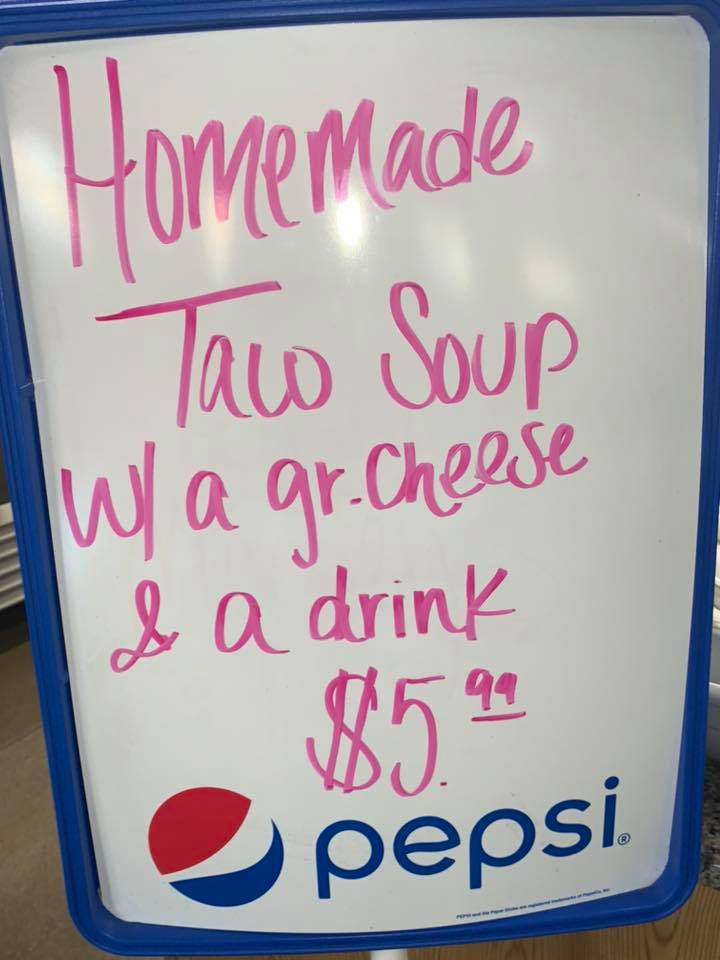 Homemade
Taco Soup
w/ a gr. cheese
& a drink
$5.99
pepsi®